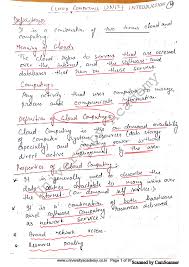 CLOUD COMPUTING UNIT-1 INTRODUCTION
Definition
It is a combination of two terms cloud and
computing.
Meaning of Cloud
The cloud refers to servers that are accessed
over the internet and the software and
databases that run on those servers.
Computing
Any activity that uses computers to manage,
process and communicate information
Definition of Cloud Computing
Cloud computing is the
of computer system resources (data storage
especially) and computing power without
direct active management by the user.
Properties of Cloud Computing
It is generally used to describe the
data centers available to many users over
the internet on demand self services
It is a combination of both hardware
and software computing resources delivered
as network services
Broad network access
Resource pooling
www.universityacademy.co.in
Page 1 of
Scanned by CamScanner